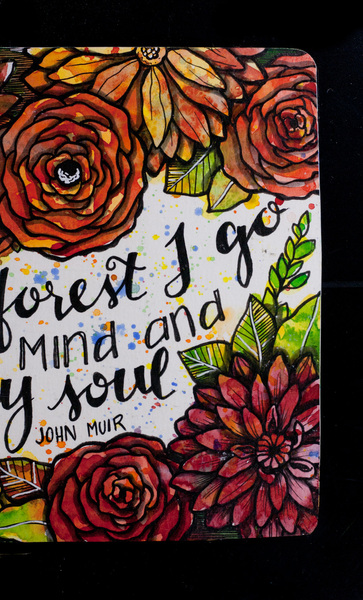 forest I go
Mind and
y soul
JOHN MUIR